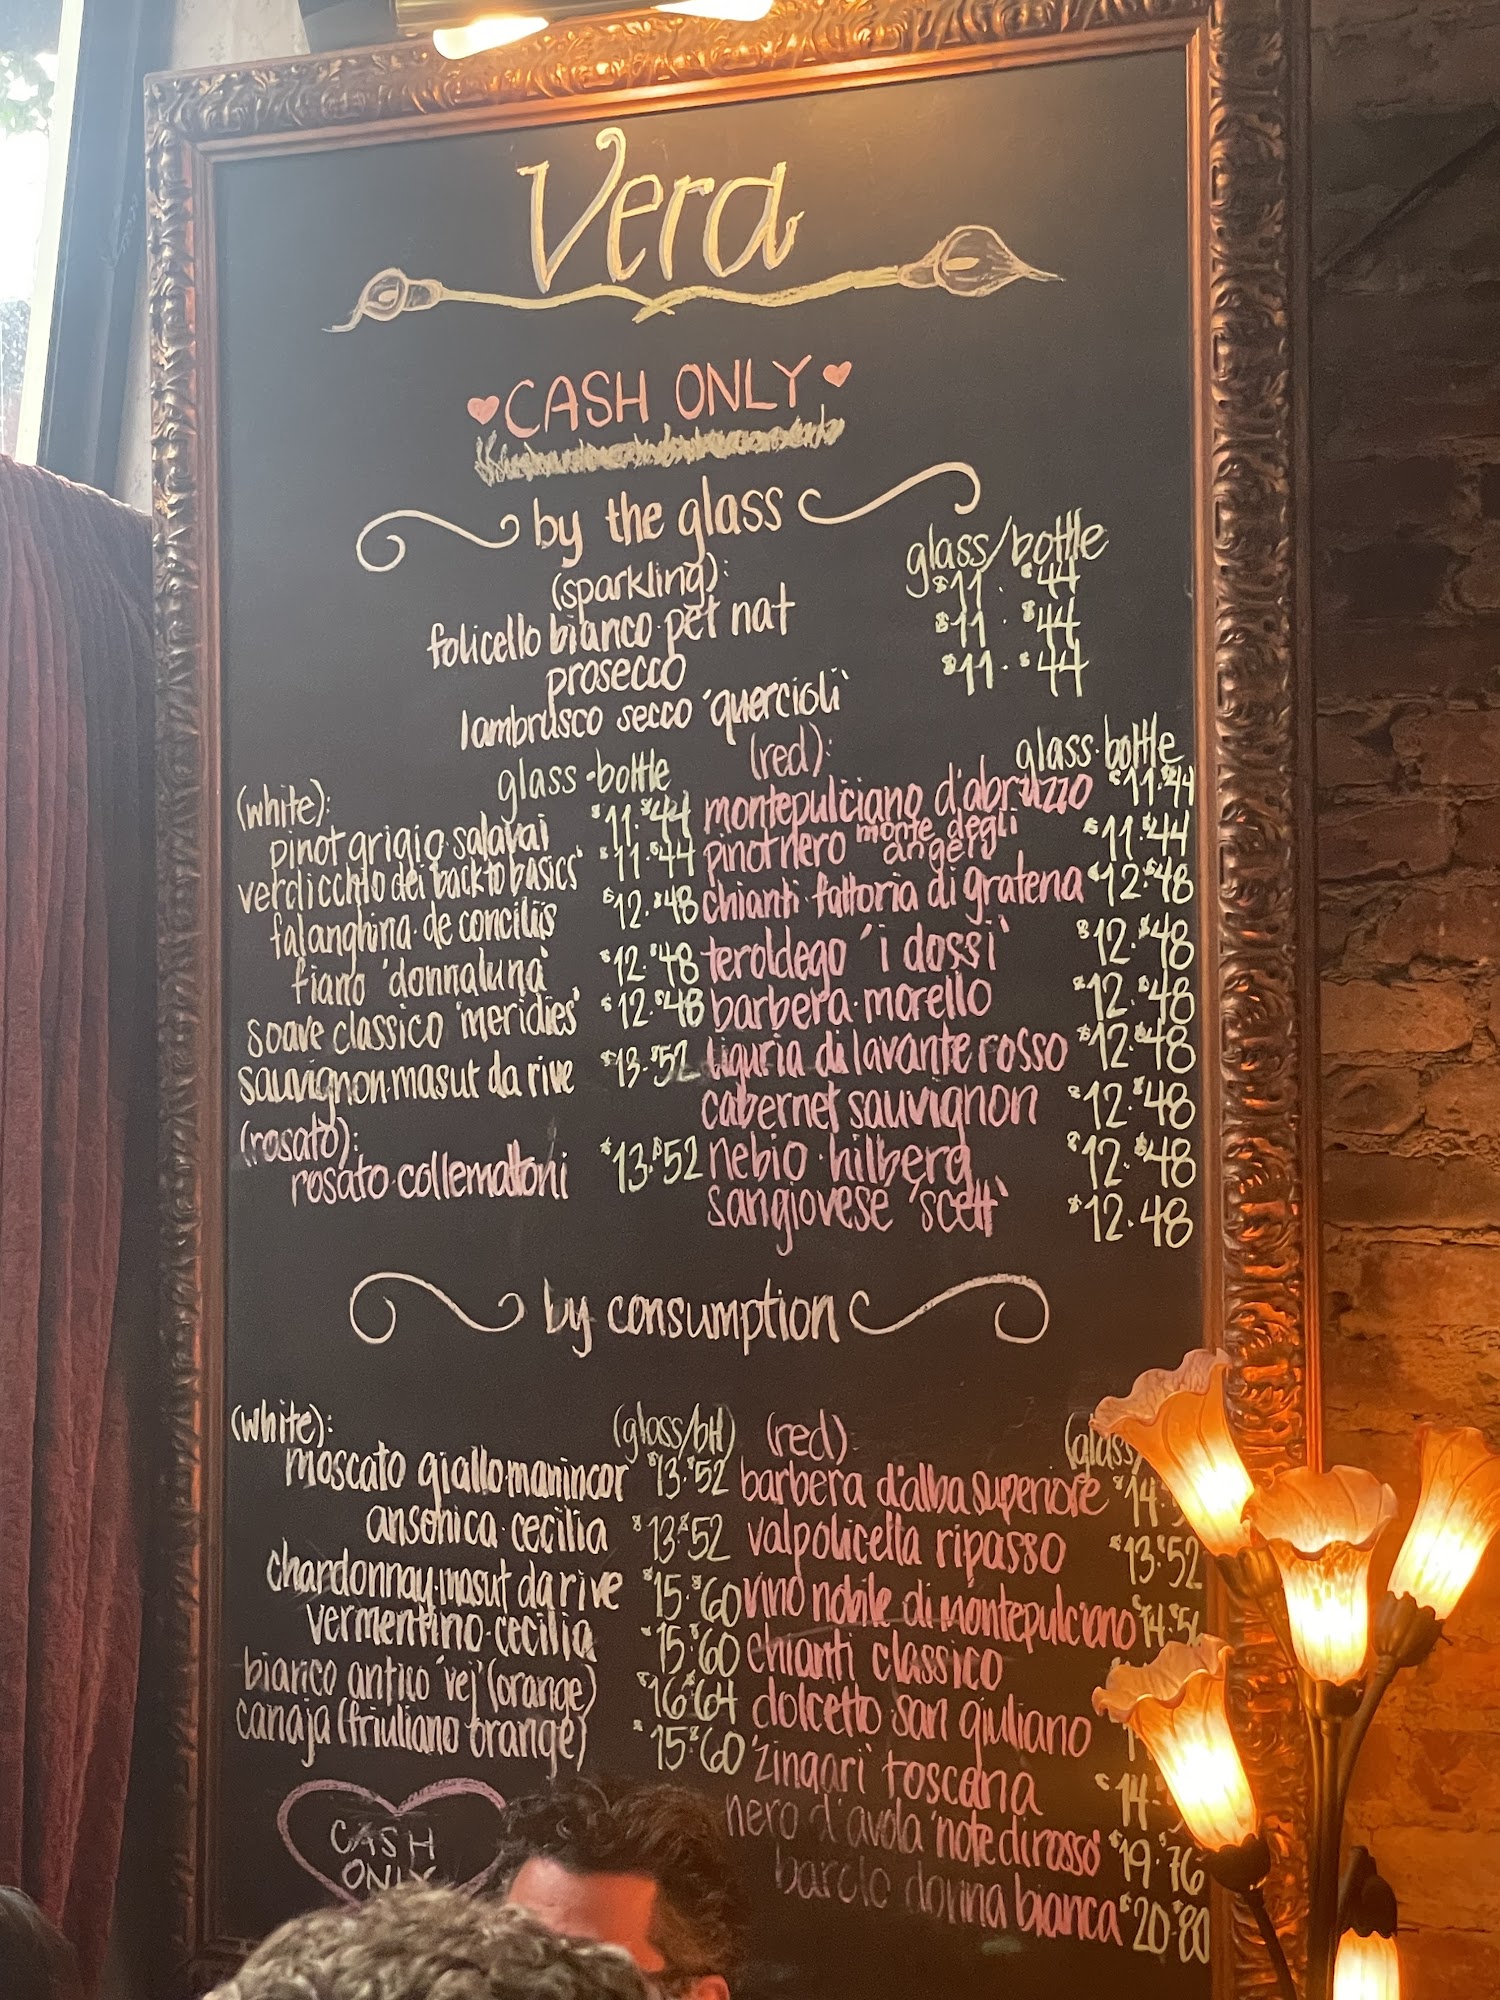 Vera
CASH ONLY
by the glass
glass/bottle
(sparkling):
folicello bianco·pet nat $11·$44
prosecco $11·$44
lambrusco secco 'quercioli' $11·$44
(white): glass·bottle
pinot grigio·salavai $11·$44
verdicchio dei 'back to basics' $11·$44
falanghina·de conciliis $12·$48
fiano 'donnaluna' $12·$48
soave classico 'meridies' $12·$48
sauvignon·masut da rive $13·$52
(rosato):
rosato·collemattoni $13·$52
(red): glass·bottle
montepulciano d'abruzzo $11·$44
pinot nero monte degli angeli $11·$44
chianti·fattoria di gratena $12·$48
teroldego 'i dossi' $12·$48
barbera·morello $12·$48
liguria di lavante rosso $12·$48
cabernet sauvignon $12·$48
nebio·hilberg $12·$48
sangiovese 'scett' $12·48
by consumption
(white): (glass/btl)
moscato giallo·manincor $13·$52
ansonica·cecilia $13·$52
chardonnay·masut da rive $15·$60
vermentino·cecilia $15·$60
bianco antico 'vej' (orange) $16·$64
canaja (friuliano orange) $15·$60
CASH
ONLY
(red) (glass/
barbera d'alba superiore $14·
valpolicella ripasso $13·$52
vino nobile di montepulciano $14·
chianti classico
dolcetto·san giuliano
'zingari' toscana $14·
nero d'avola 'note di rosso' $19·$76
barolo donna bianca $20·$80